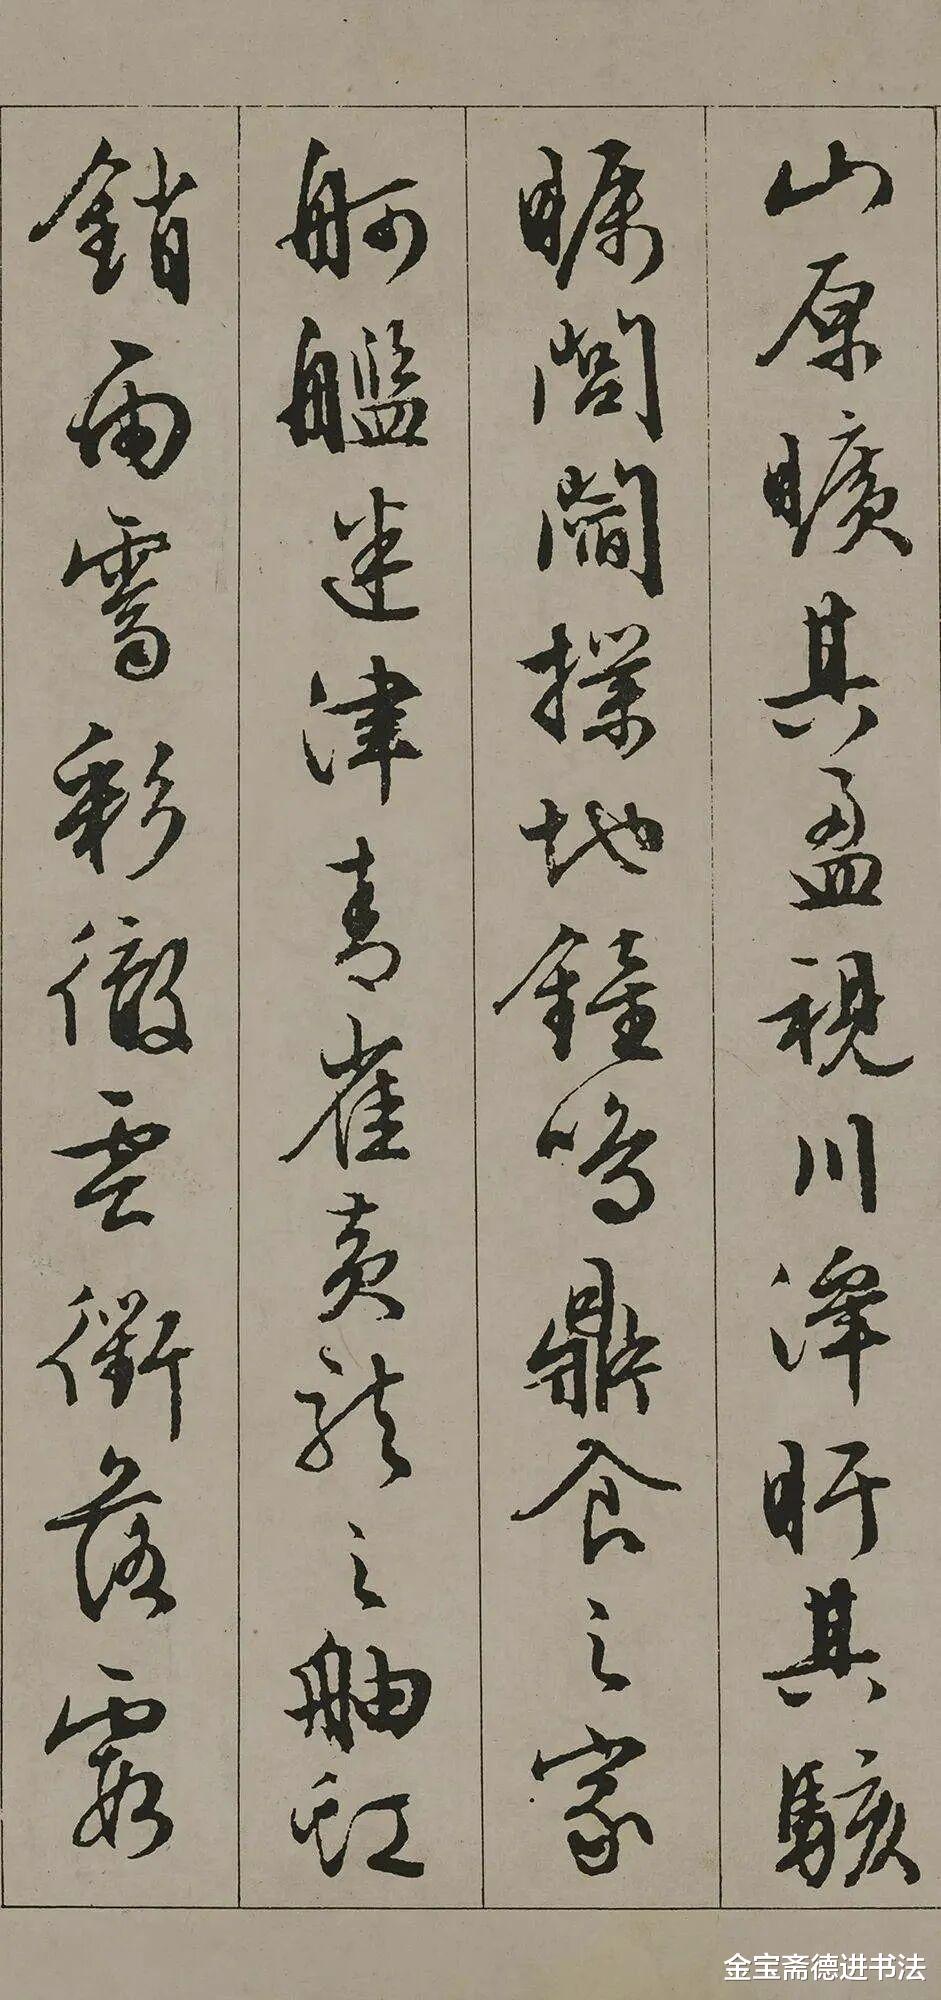 山原曠其盈視川澤盱其駭
矚閭閻撲地鐘鳴鼎食之家
舸艦迷津青雀黃龍之舳虹
銷雨霽彩徹雲衢落霞
金宝斋德进书法